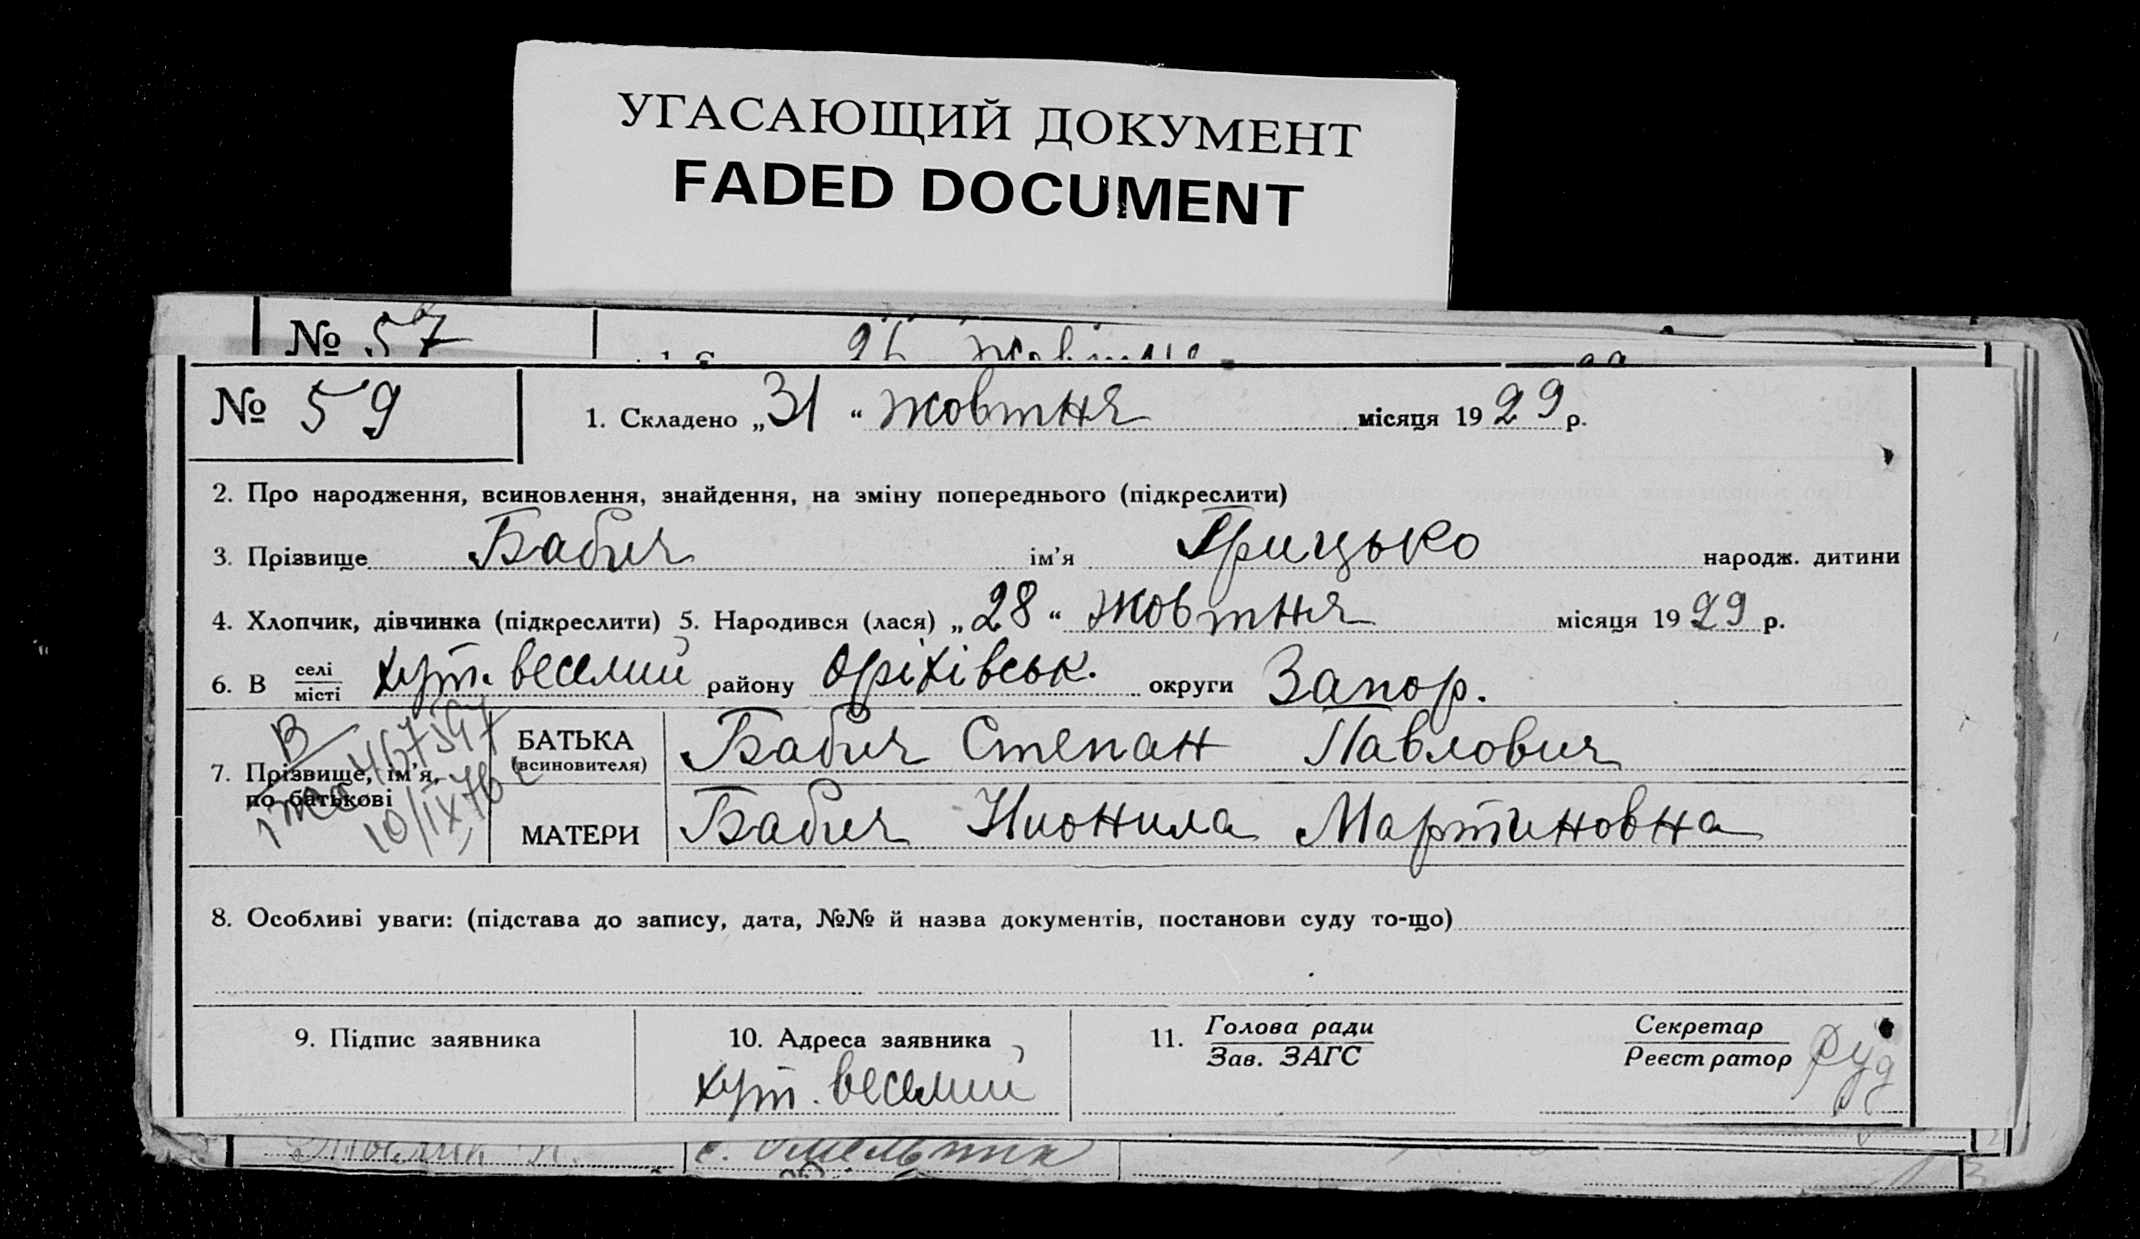 УГАСАЮЩИЙ ДОКУМЕНТ
FADED DOCUMENT
№ 57
№ 59
1. Складено „31“ жовтня місяця 1929 р.
2. Про народження, всиновлення, знайдення, на зміну попереднього (підкреслити)
3. Прізвище Бабич ім’я Грицько народж. дитини
4. Хлопчик, дівчинка (підкреслити) 5. Народився (лася) „28“ жовтня місяця 1929 р.
6. В селі місті хут. веселий району Оріхівськ. округи Запор.
7. Прізвище, ім’я, по батькові
10/IX 76
БАТЬКА (всиновителя) Бабич Степан Павлович
МАТЕРИ Бабич Нионила Мартиновна
8. Особливі уваги: (підстава до запису, дата, №№ й назва документів, постанови суду то-що)
9. Підпис заявника
10. Адреса заявника
хут. веселий
11. Голова ради
Зав. ЗАГС
Секретар
Реєстратор
с. Омельник